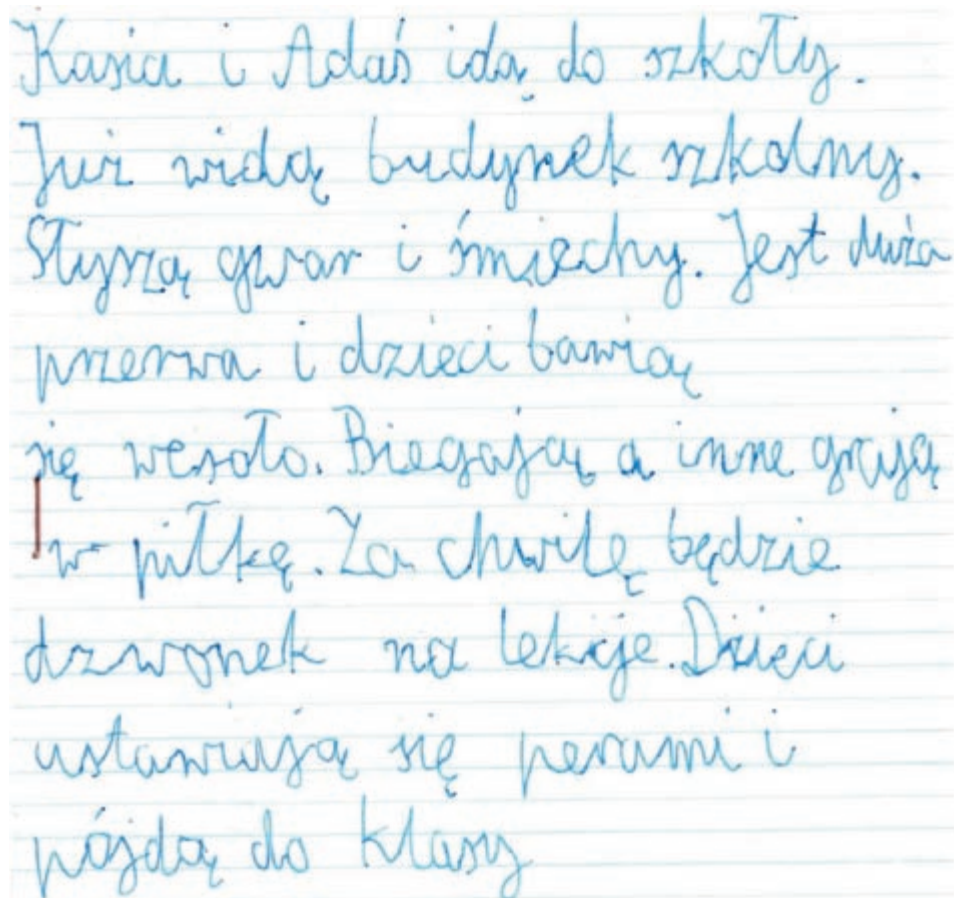 Kasia i Adaś idą do szkoły.
Już widą budynek szkolny.
Słyszą gwar i śmiechy. Jest duża
przerwa i dzieci bawią
się wesoło. Biegają a inne grają
w piłkę. Za chwilę będzie
dzwonek na lekcje. Dzieci
ustawiają się perami i
pójdą do klasy